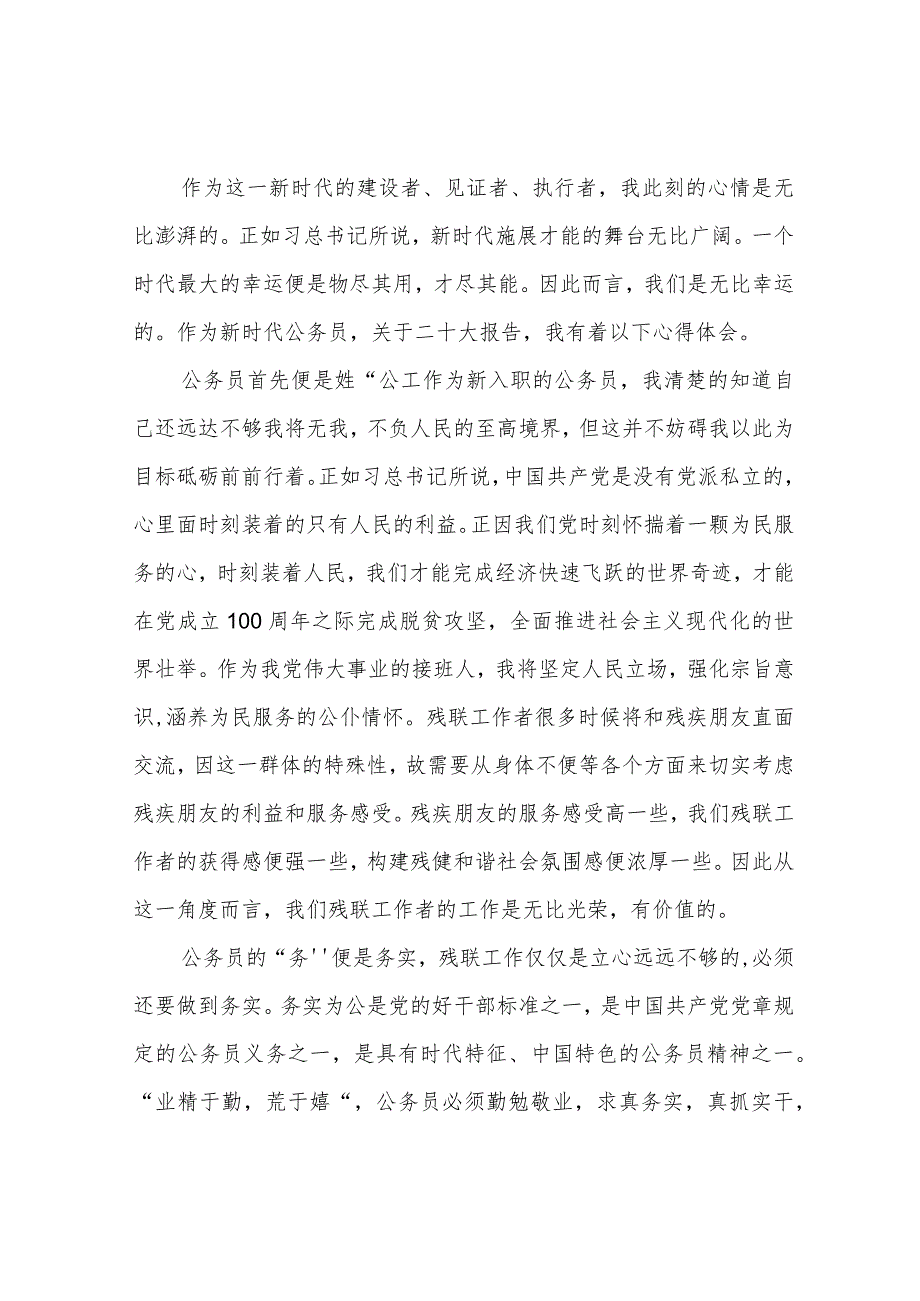 作为这一新时代的建设者、见证者、执行者，我此刻的心情是无
比澎湃的。正如习总书记所说，新时代施展才能的舞台无比广阔。一个
时代最大的幸运便是物尽其用，才尽其能。因此而言，我们是无比幸运
的。作为新时代公务员，关于二十大报告，我有着以下心得体会。
公务员首先便是姓“公工作为新入职的公务员，我清楚的知道自
己还远达不够我将无我，不负人民的至高境界，但这并不妨碍我以此为
目标砥砺前前行着。正如习总书记所说，中国共产党是没有党派私立的，
心里面时刻装着的只有人民的利益。正因我们党时刻怀揣着一颗为民服
务的心，时刻装着人民，我们才能完成经济快速飞跃的世界奇迹，才能
在党成立 100 周年之际完成脱贫攻坚，全面推进社会主义现代化的世
界壮举。作为我党伟大事业的接班人，我将坚定人民立场，强化宗旨意
识,涵养为民服务的公仆情怀。残联工作者很多时候将和残疾朋友直面
交流，因这一群体的特殊性，故需要从身体不便等各个方面来切实考虑
残疾朋友的利益和服务感受。残疾朋友的服务感受高一些，我们残联工
作者的获得感便强一些，构建残健和谐社会氛围感便浓厚一些。因此从
这一角度而言，我们残联工作者的工作是无比光荣，有价值的。
公务员的“务''便是务实，残联工作仅仅是立心远远不够的,必须
还要做到务实。务实为公是党的好干部标准之一，是中国共产党党章规
定的公务员义务之一，是具有时代特征、中国特色的公务员精神之一。
“业精于勤，荒于嬉“，公务员必须勤勉敬业，求真务实，真抓实干，